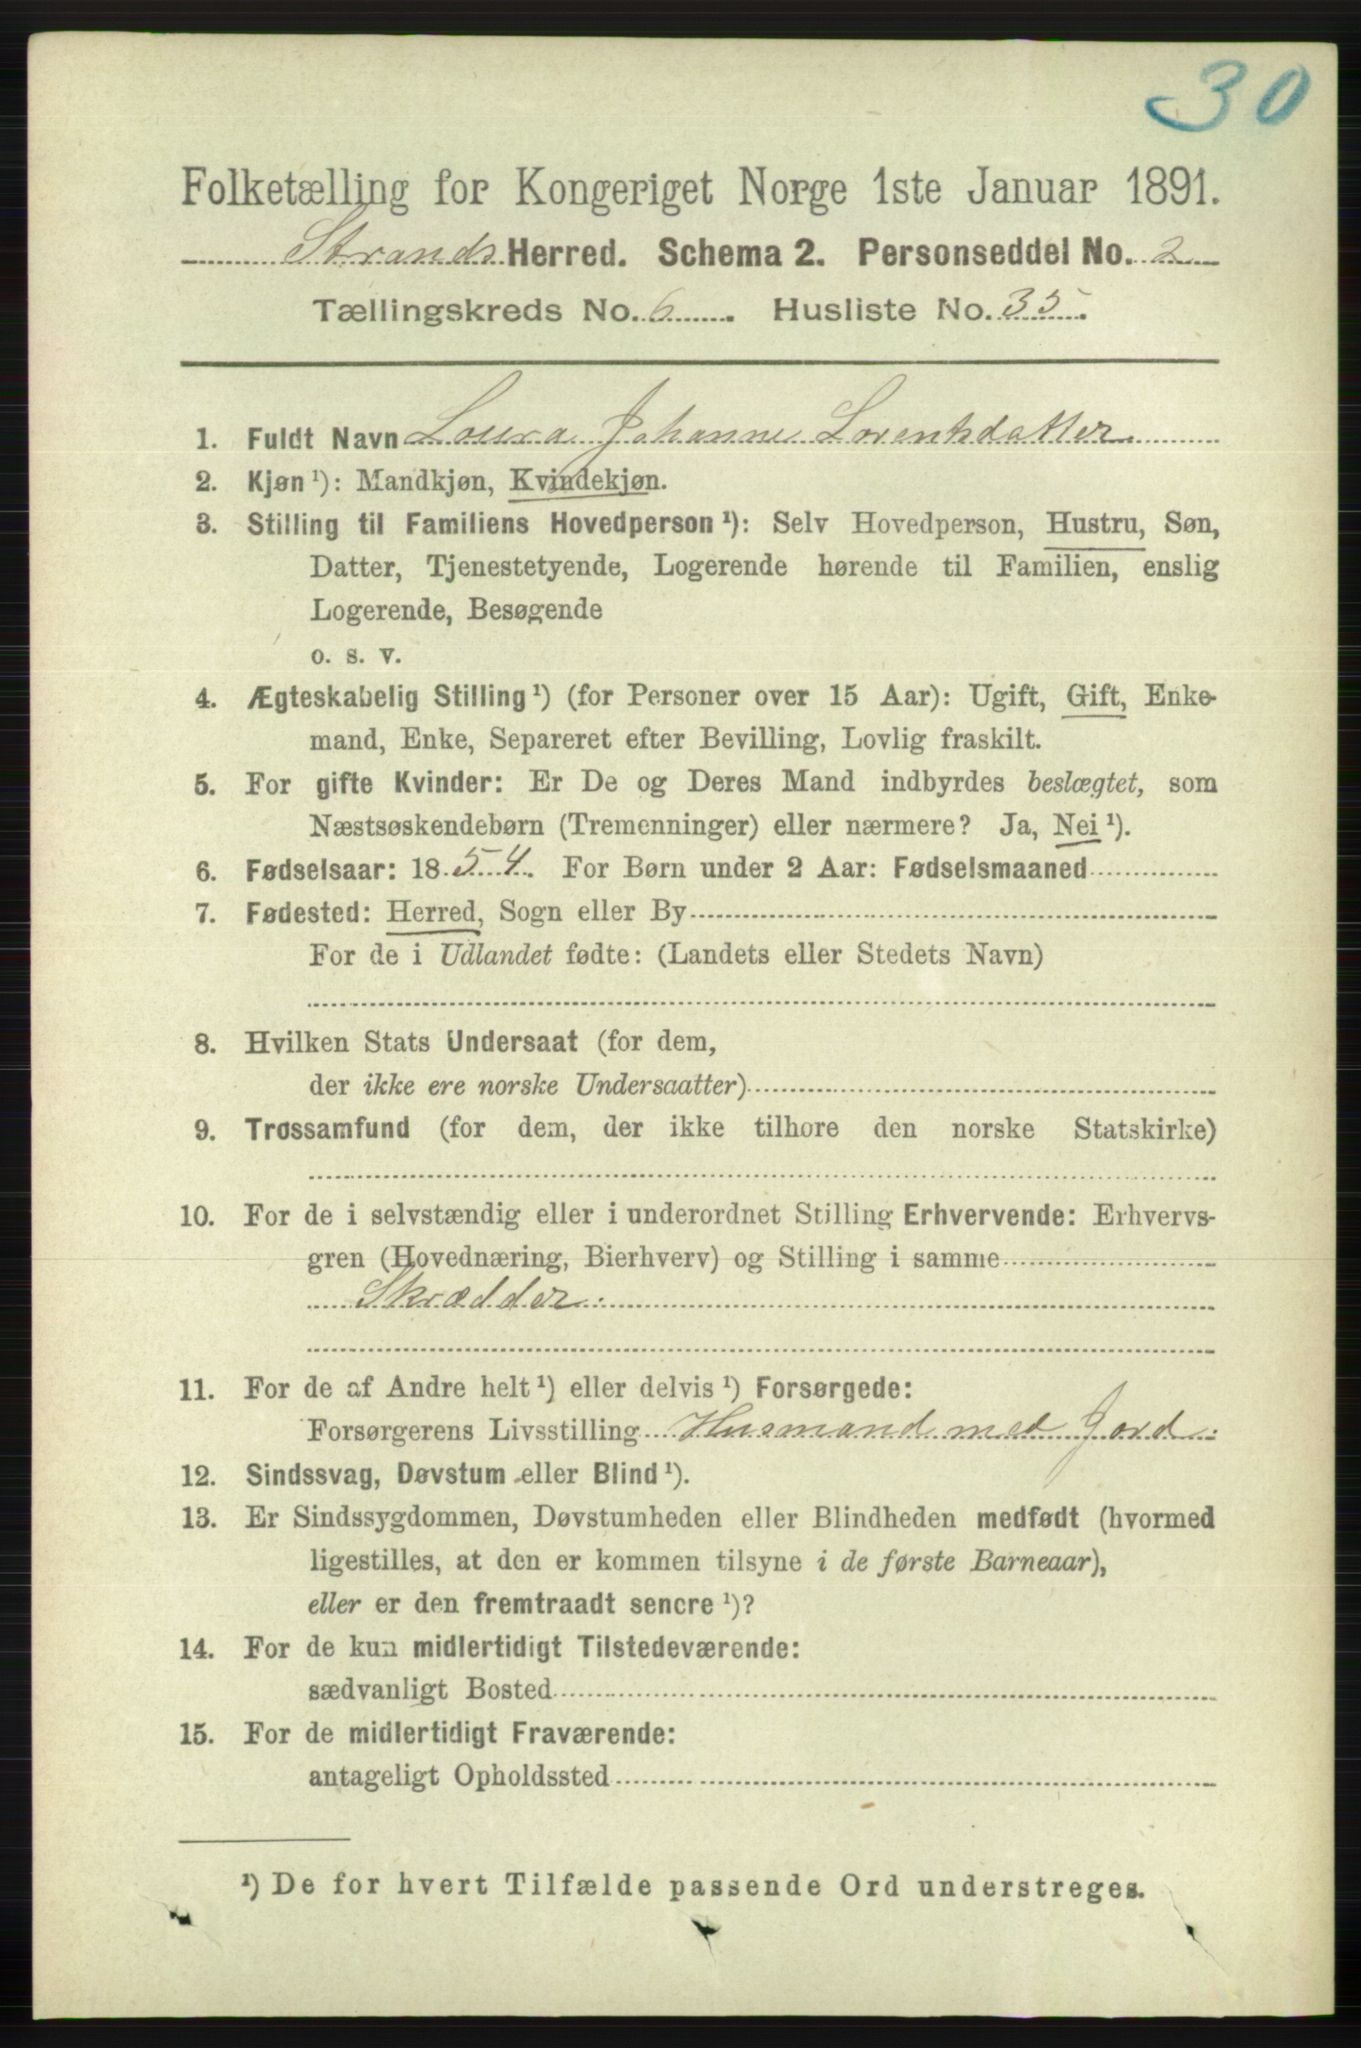 30
Folketælling for Kongeriget Norge 1ste Januar 1891.
Strands Herred. Schema 2. Personseddel No. 2
Tællingskreds No. 6. Husliste No. 35.
1. Fuldt Navn Loura Johanne Lorentsdatter
2. Kjøn ¹): Mandkjøn, Kvindekjøn.
3. Stilling til Familiens Hovedperson ¹): Selv Hovedperson, Hustru, Søn,
Datter, Tjenestetyende, Logerende hørende til Familien, enslig
Logerende, Besøgende
o. s. v.
4. Ægteskabelig Stilling ¹) (for Personer over 15 Aar): Ugift, Gift, Enke-
mand, Enke, Separeret efter Bevilling, Lovlig fraskilt.
5. For gifte Kvinder: Er De og Deres Mand indbyrdes beslægtet, som
Næstsøskendebørn (Tremenninger) eller nærmere? Ja, Nei ¹).
6. Fødselsaar: 1854. For Børn under 2 Aar: Fødselsmaaned
7. Fødested: Herred, Sogn eller By
For de i Udlandet fødte: (Landets eller Stedets Navn)
8. Hvilken Stats Undersaat (for dem,
der ikke ere norske Undersaatter)
9. Trossamfund (for dem, der ikke tilhøre den norske Statskirke)
10. For de i selvstændig eller i underordnet Stilling Erhvervende: Erhvervs-
gren (Hovednæring, Bierhverv) og Stilling i samme
Skrædder.
11. For de af Andre helt ¹) eller delvis ¹) Forsørgede:
Forsørgerens Livsstilling Husmand med Jord.
12. Sindssvag, Døvstum eller Blind ¹).
13. Er Sindssygdommen, Døvstumheden eller Blindheden medfødt (hvormed
ligestilles, at den er kommen tilsyne i de første Barneaar),
eller er den fremtraadt senere ¹)?
14. For de kun midlertidigt Tilstedeværende:
sædvanligt Bosted
15. For de midlertidigt Fraværende:
antageligt Opholdssted
¹) De for hvert Tilfælde passende Ord understreges.